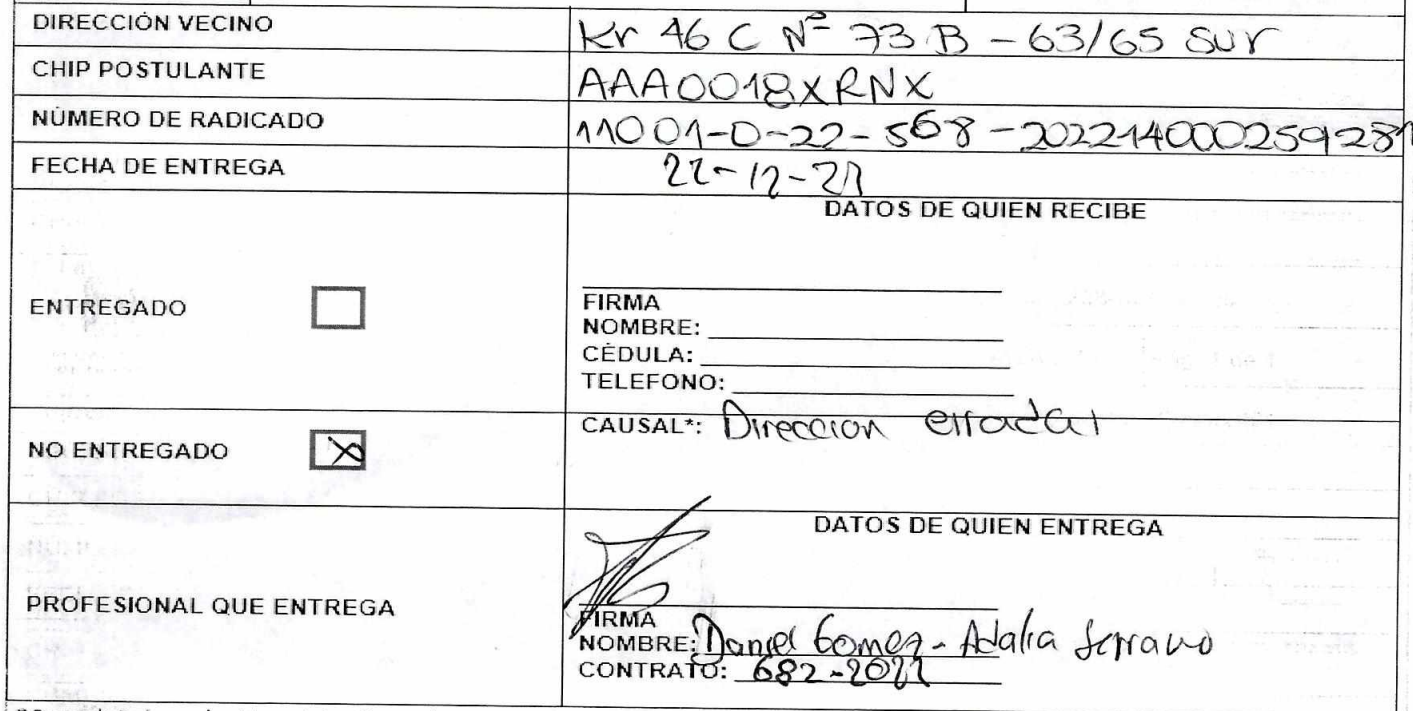 DIRECCIÓN VECINO Kr 46 C Nº 73 B - 63/65 SUr
CHIP POSTULANTE AAA0018XRNX
NÚMERO DE RADICADO 11001-0-22-568-20221400025928
FECHA DE ENTREGA 22-12-21
DATOS DE QUIEN RECIBE
ENTREGADO
FIRMA
NOMBRE:
CÉDULA:
TELEFONO:
NO ENTREGADO
CAUSAL*: Direccion errada
DATOS DE QUIEN ENTREGA
PROFESIONAL QUE ENTREGA
FIRMA
NOMBRE: Daniel Gomez - Adalia Serrano
CONTRATO: 682-2022